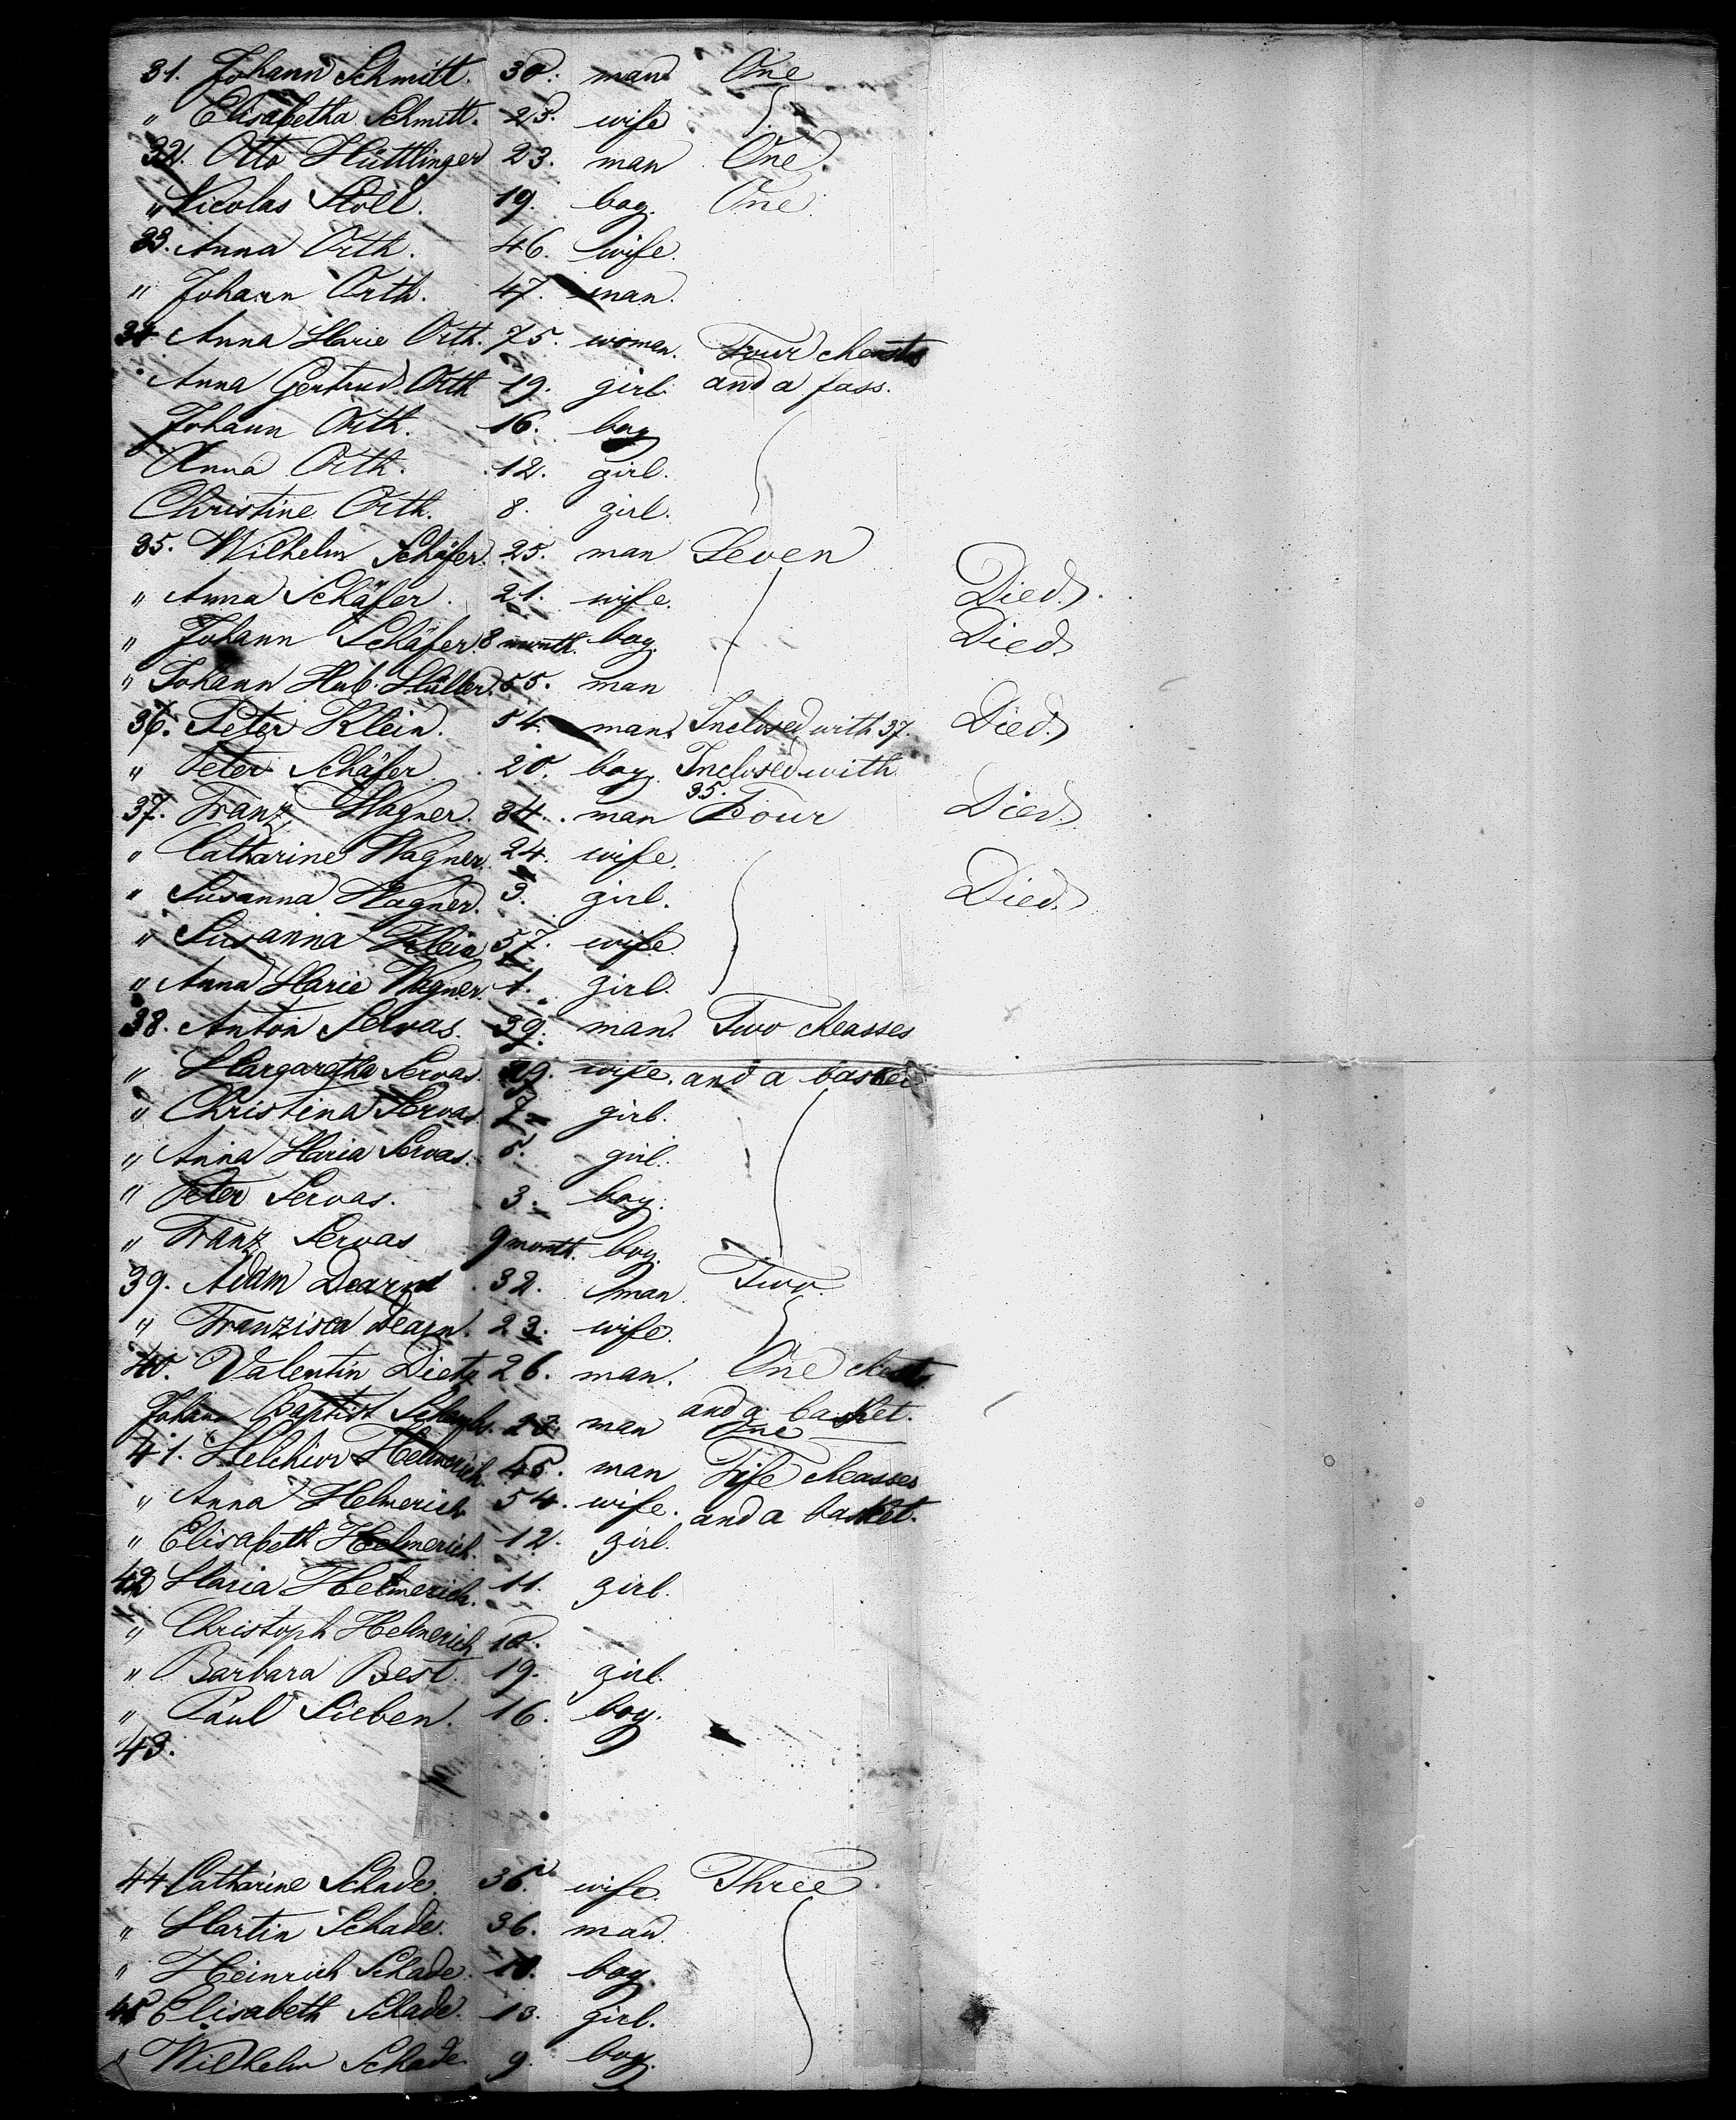 31. Johann Schmitt. 30. man One
" Elisabetha Schmitt. 25. wife
32. Otto Hüttlinger 23. man One.
" Nicolas Stoll. 19. boy. One.
33. Anna Orth. 46. wife.
" Johann Orth. 47. man.
34 Anna Marie Orth. 75. woman. Four cheasts
" Anna Gertrud Orth 19. girl. and a fass.
Johann Orth. 16. boy
Anna Orth. 12. girl.
Christine Orth. 8. girl.
35. Wilhelm Schäfer. 25. man Seven
" Anna Schäfer. 21. wife. Died.
" Johann Schäfer. 8 month. boy. Died.
" Johann Hub. Müller. 55. man
36. Peter Klein. 54. man. Inclosed with 37. Died.
" Peter Schäfer. 20. boy. Inclosed with
35.
37. Franz Wagner. 34. man Four Died.
" Catharine Wagner. 24. wife.
" Susanna Wagner. 3. girl. Died.
" Susanna Klein 57. wife.
" Anna Marie Wagner. 1. girl.
38. Anton Servas. 39. man. Two cheasses
" Margaretha Servas. 29. wife. and a basket
" Christina Servas. 7 girl.
" Anna Maria Servas. 5. girl.
" Peter Servas. 3. boy.
" Franz Servas 9 month. boy.
39. Adam 32. man Two.
" Franzisca 23. wife.
40. Valentin Dietz 26. man. One cheast
and a basket.
Johann Baptist man One
41. Melchior Helmerich. 45. man Fife cheasses
" Anna Helmerich 54. wife. and a basket.
" Elisabeth Helmerich. 12. girl.
42 Maria Helmerich. 11. girl.
" Christoph Helmerich 10.
" Barbara Best. 19. girl.
" Paul Sieben. 16. boy.
43.
44 Catharine Schade. 36. wife. Three
" Martin Schade. 36. man.
" Heinrich Schade. 10. boy.
45 Elisabeth Schade. 13. girl.
" Wilhelm Schade 9. boy.